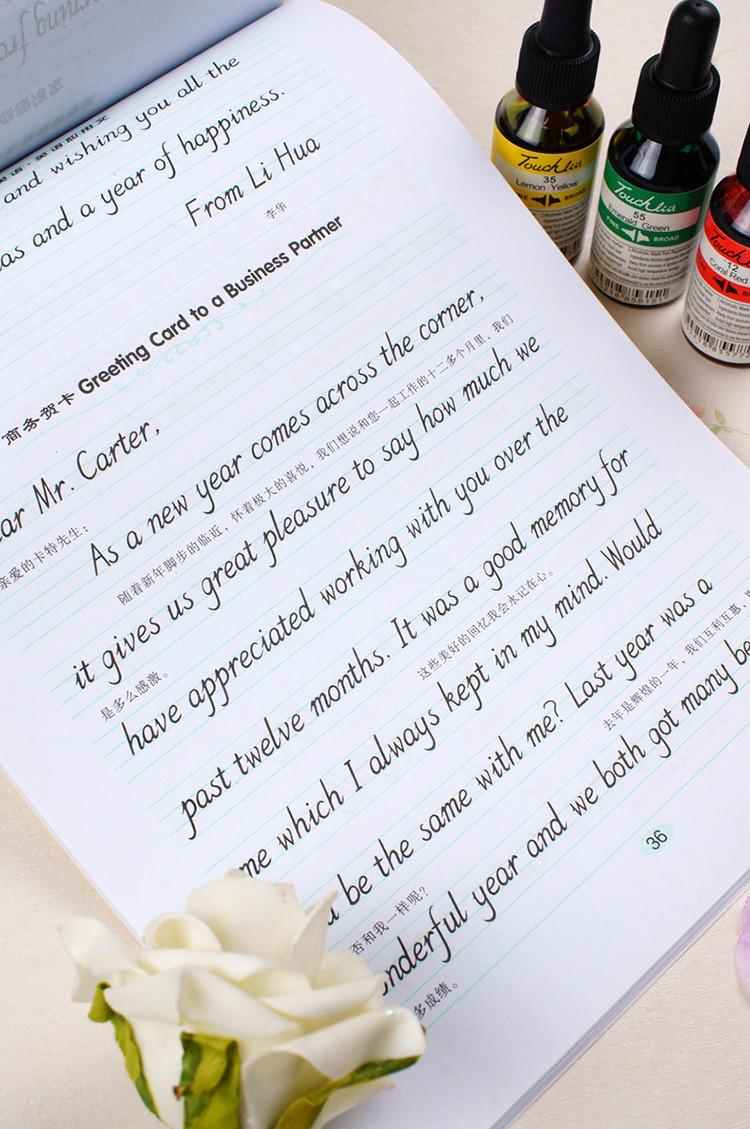 and wishing you all the
as and a year of happiness.
From Li Hua
李华
商务贺卡 Greeting Card to a Business Partner
ar Mr. Carter,
亲爱的卡特先生：
As a new year comes across the corner,
随着新年脚步的临近，怀着极大的喜悦，我们想说和您一起工作的十二多个月里，我们
it gives us great pleasure to say how much we
是多么感激。
have appreciated working with you over the
past twelve months. It was a good memory for
这些美好的回忆我会永记在心。
me which I always kept in my mind. Would
be the same with me? Last year was a
否和我一样呢？
去年是辉煌的一年，我们互利互惠，
nderful year and we both got many be
多成绩。
36
Touch liit
35
Lemon Yellow
FINE BROAD
Touch liit
55
Emerald Green
FINE BROAD
12
Coral Red